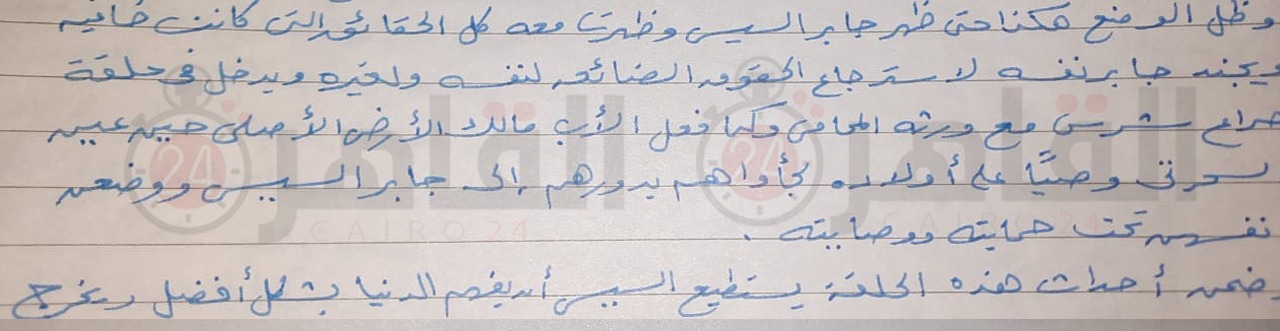 وظل الوضع هكذا حتى ظهر جابر السيسى وظهرت معه كل الحقائق التى كانت خافيه
ويجند جابر نفسه لاسترجاع الحقوق الضائعه لنفسه ولغيره ويدخل فى حلقة
صراع شرس مع ورثه المحامى وكما فعل الأب مالك الأرض الأصلى حين عين
وصيًا على أولاده لجأوا هم بدورهم إلى جابر السيسى ووضعن
نفسهن تحت حمايته ووصايته .
ضمن أحداث هذه الحلقة يستطيع السيسى أن يفهم الدنيا بشكل أفضل ويخرج
القاهرة 24
CAIRO 24
القاهرة 24
CAIRO 24